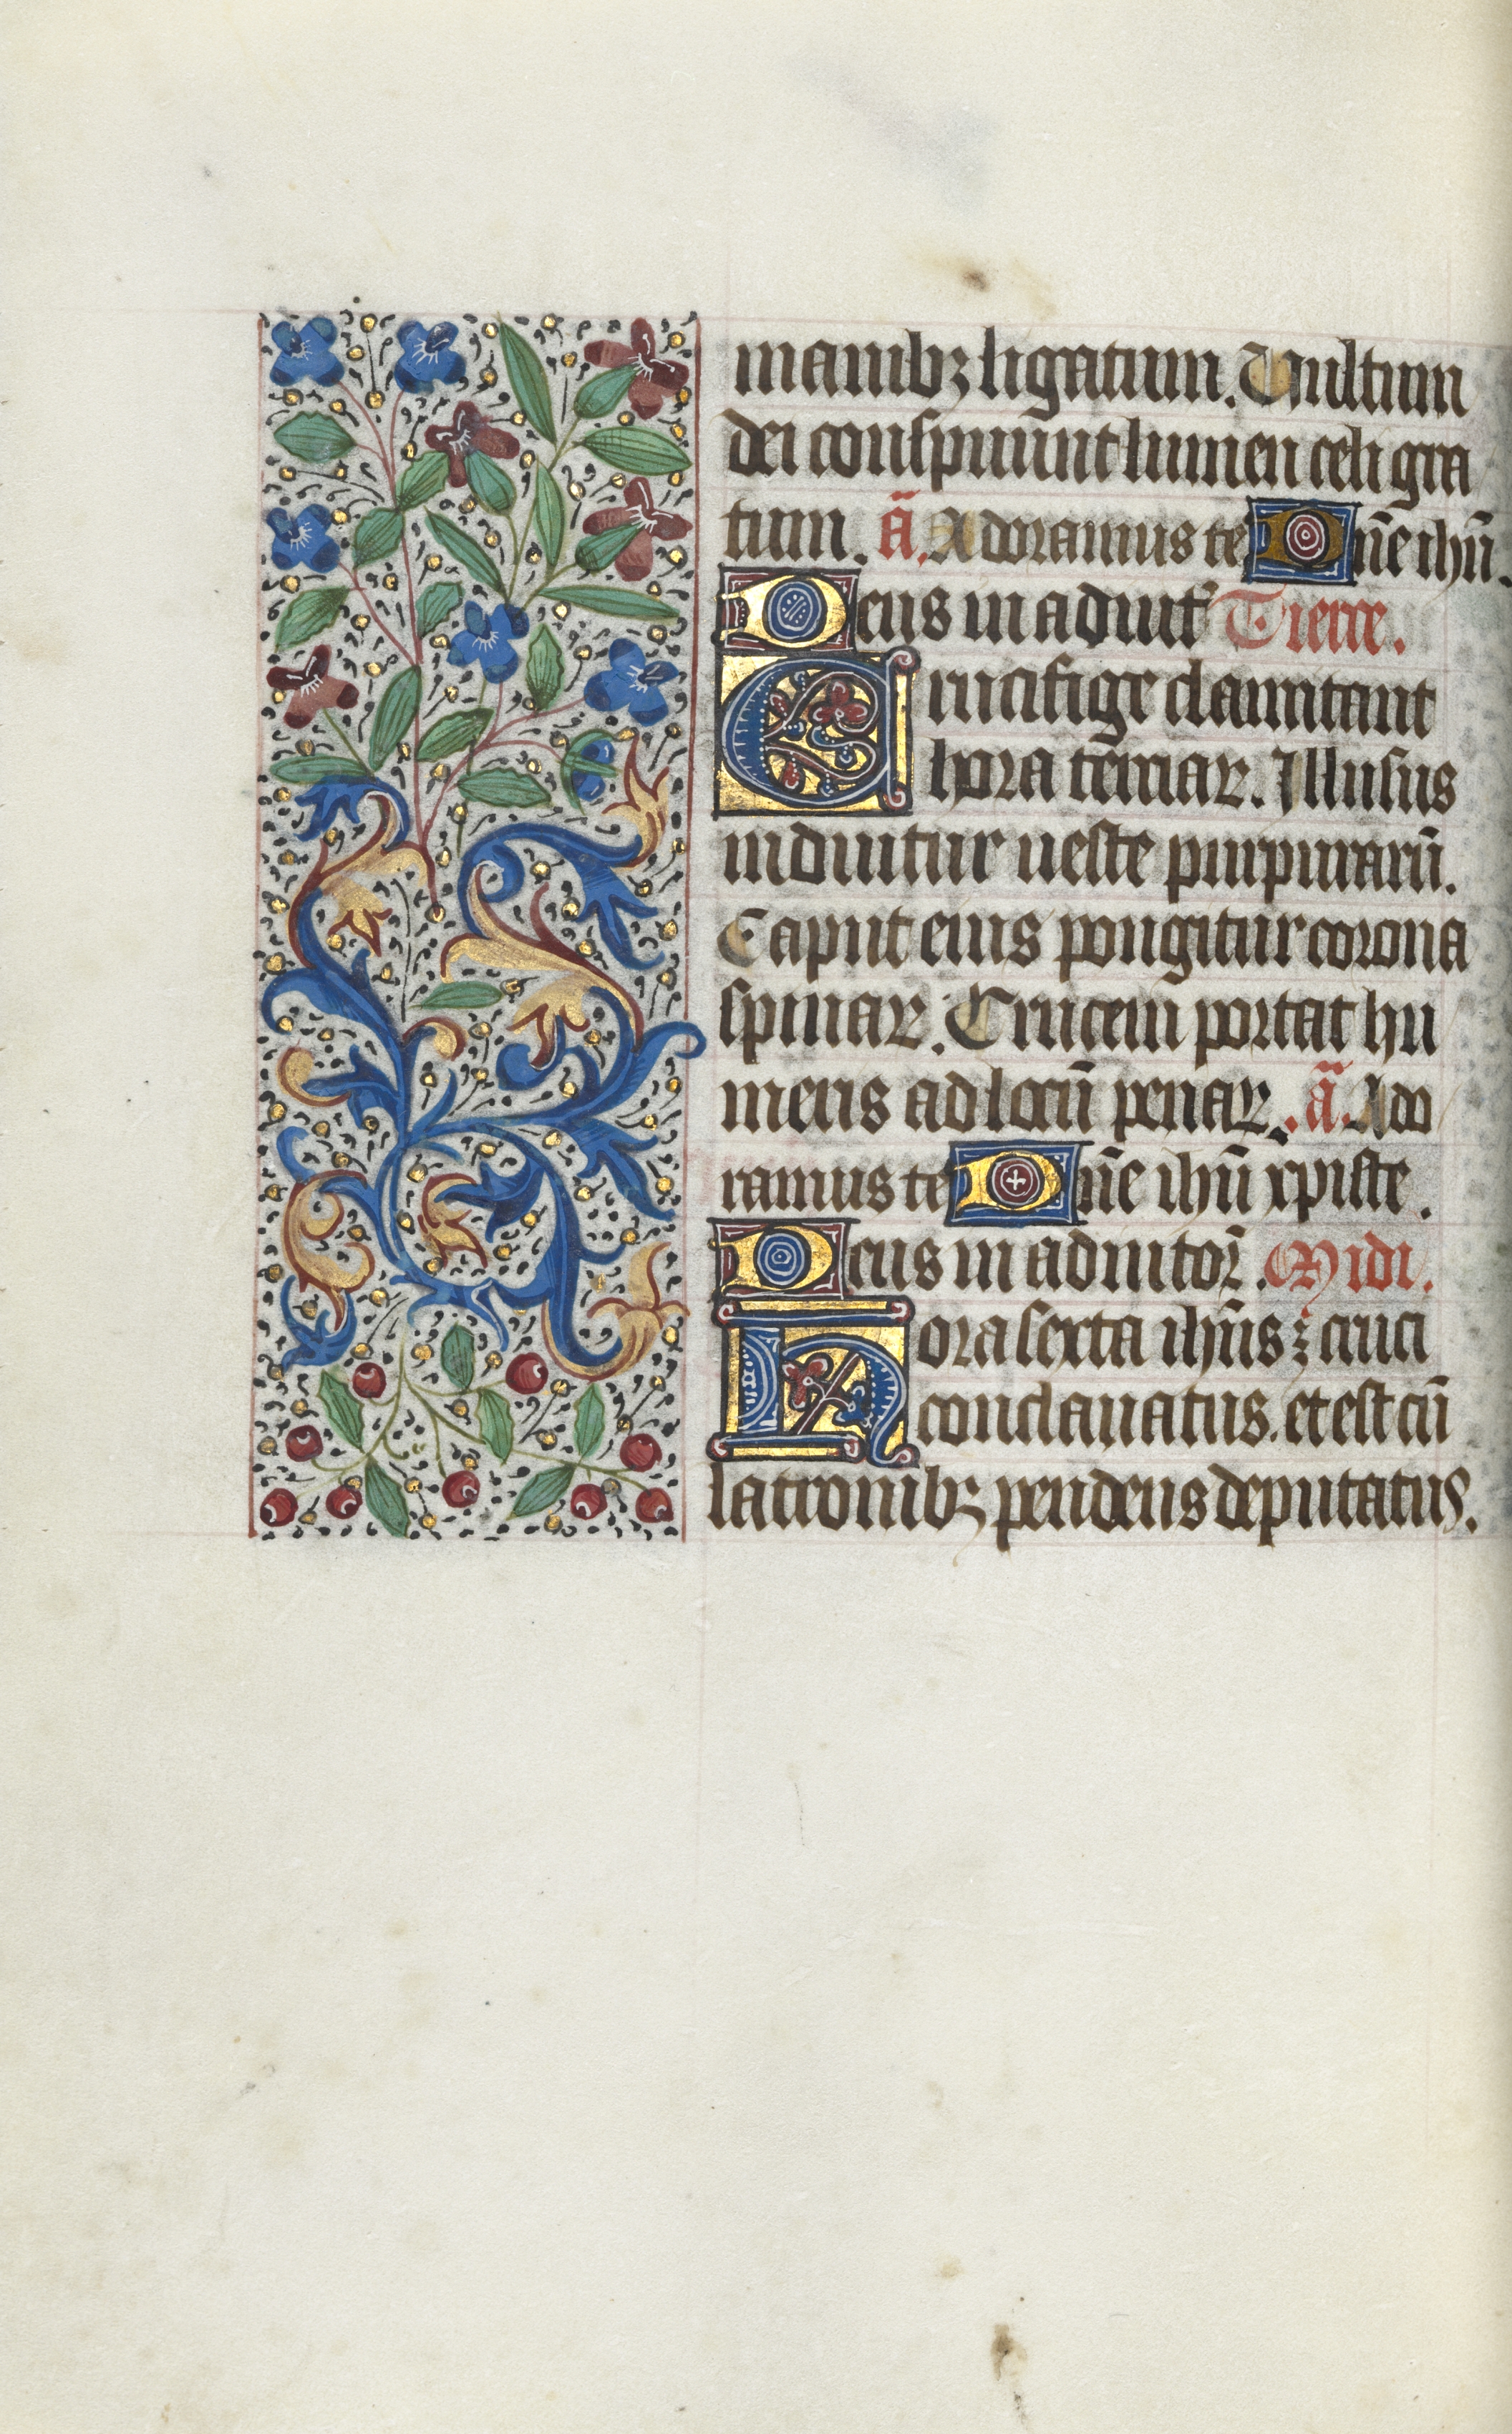 manibꝫ ligatum. Vultum
dei conspuunt lumen celi gra
tum. ā. Adoramus te Dn̄e ihū.
Deus in adiut̄ Tierce.
Crucifige clamitant
hora terciaꝝ. Illusus
induitur ueste purpuraꝝū.
Caput eius pungitur corona
spinaꝝ. Crucem portat hu
meris ad locū penaꝝ. ā. Ado
ramus te Dn̄e ihū xpiste.
Deus in adiutor̄. Midi.
Hora sexta ihūs ⁊ cruci
conclauatus. et est cū
latronibꝫ pendens deputatus.